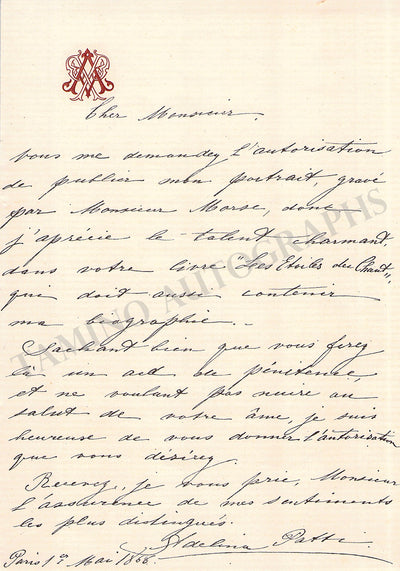 Cher Monsieur,
vous me demandez l'autorisation
de publier mon portrait, gravé
par Monsieur Morse, donc
j'aprécie le talent charmant,
dans votre livre "Les Etoiles du Chant",
qui doit aussi contenir
ma biographie. _
Sachant bien que vous ferez
là un acte de pénitence,
et ne voulant pas nuire au
salut de votre âme, je suis
heureuse de vous donner l'autorisation
que vous désirez
Recevez, je vous prie, Monsieur
l'assurence de mes sentiments
les plus distingués.
Adelina Patti
Paris 1er Mai
TAMINO AUTOGRAPHS